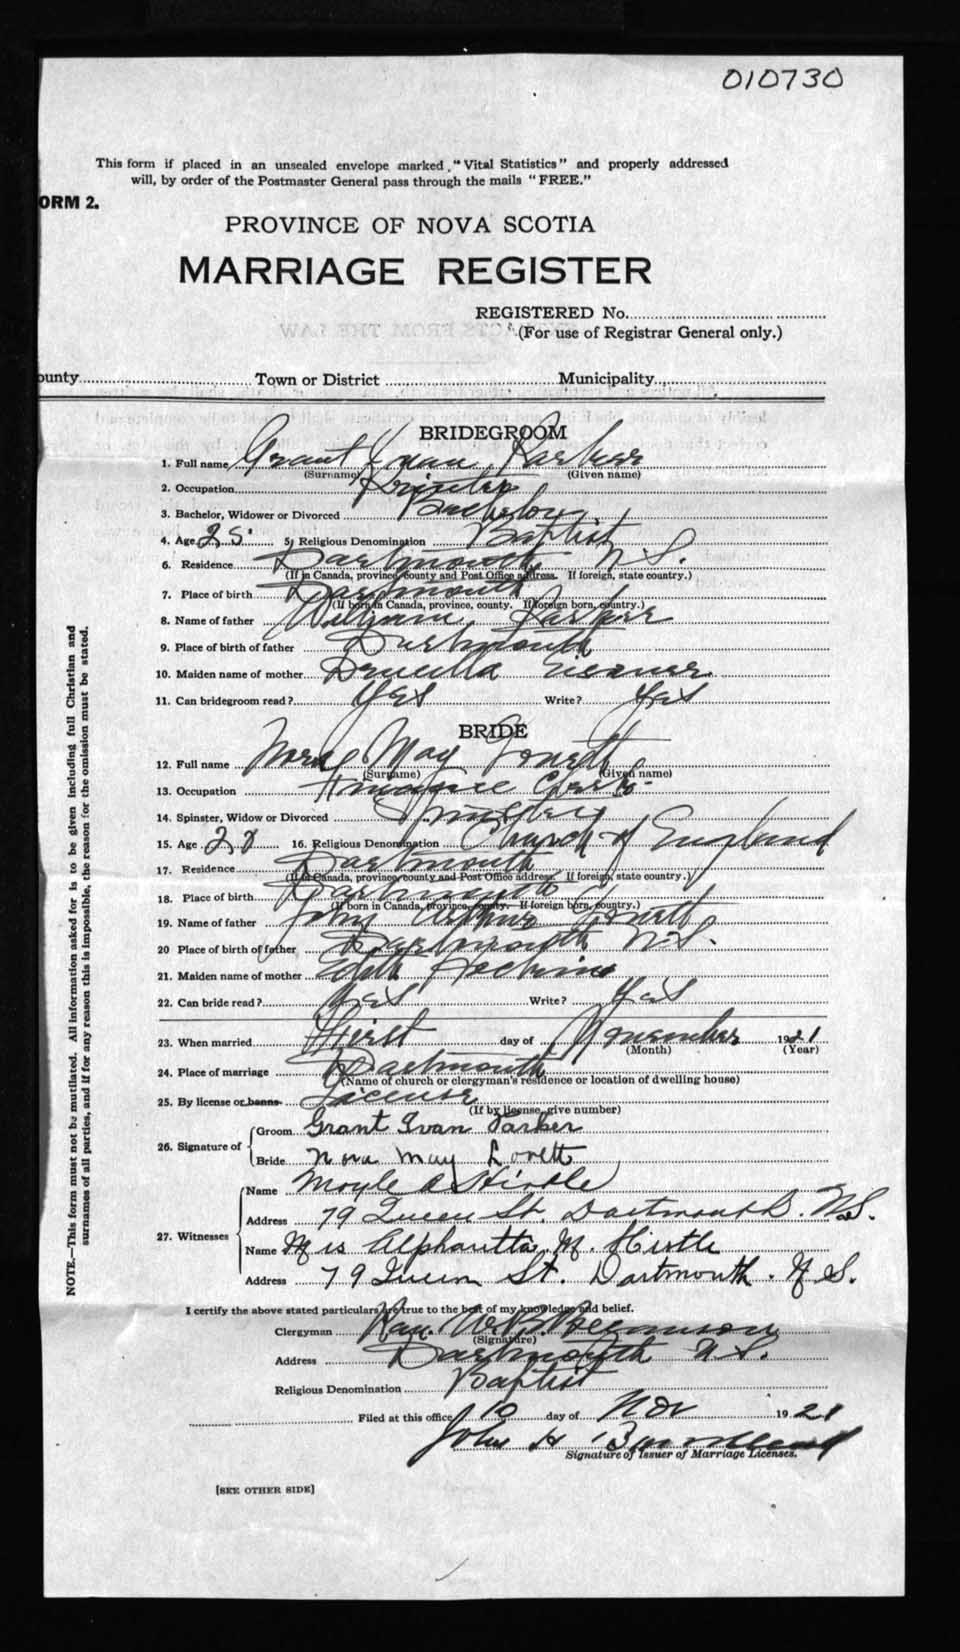 010730
This form if placed in an unsealed envelope marked "Vital Statistics" and properly addressed
will, by order of the Postmaster General pass through the mails "FREE."
ORM 2.
PROVINCE OF NOVA SCOTIA
MARRIAGE REGISTER
REGISTERED No.
(For use of Registrar General only.)
ounty Town or District Municipality
BRIDEGROOM
1. Full name Grant Ivan Parker
(Surname) (Given name)
2. Occupation Printer
3. Bachelor, Widower or Divorced Bachelor
4. Age 25 5. Religious Denomination Baptist
6. Residence Dartmouth N.S.
(If in Canada, province, county and Post Office address. If foreign, state country.)
7. Place of birth Dartmouth
(If born in Canada, province, county. If foreign born, country.)
8. Name of father William Parker
9. Place of birth of father Dartmouth
10. Maiden name of mother Drucilla Eisener
11. Can bridegroom read? Yes Write? Yes
BRIDE
12. Full name Nora May Lovett
(Surname) (Given name)
13. Occupation
14. Spinster, Widow or Divorced Spinster
15. Age 22 16. Religious Denomination Church of England
17. Residence Dartmouth
(If in Canada, province, county and Post Office address. If foreign, state country.)
18. Place of birth Dartmouth
(If born in Canada, province, county. If foreign born, country.)
19. Name of father John Arthur Lovett
20 Place of birth of father Dartmouth N.S.
21. Maiden name of mother Edith
22. Can bride read? Yes Write? Yes
23. When married First day of November 1921
(Month) (Year)
24. Place of marriage Dartmouth
(Name of church or clergyman's residence or location of dwelling house)
25. By license or banns License
(If by license, give number)
26. Signature of Groom Grant Ivan Parker
Bride Nora May Lovett
27. Witnesses Name Moyle A Hirtle
Address 79 Queen St. Dartmouth. N.S.
Name Mrs Alpharetta M. Hirtle
Address 79 Queen St. Dartmouth. N.S.
I certify the above stated particulars are true to the best of my knowledge and belief.
Clergyman W. B.
(Signature)
Address Dartmouth N.S.
Religious Denomination Baptist
Filed at this office 10 day of Nov 1921
John H
Signature of Issuer of Marriage Licenses.
[SEE OTHER SIDE]
NOTE.—This form must not be mutilated. All information asked for is to be given including full Christian and
surnames of all parties, and if for any reason this is impossible, the reason for the omission must be stated.